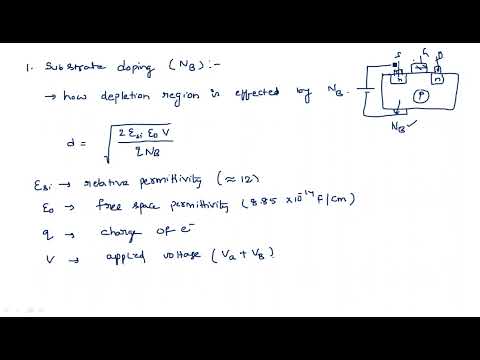 1. Substrate doping (NB):-
→ how depletion region is effected by NB.
d = √(2 εsi ε0 V / q NB)
εsi → relative permittivity (≈12)
ε0 → free space permittivity (8.85 x10^-14 F/cm)
q → charge of e-
V → applied voltage (Va + VB)
S G D
n n
P
NB ✓